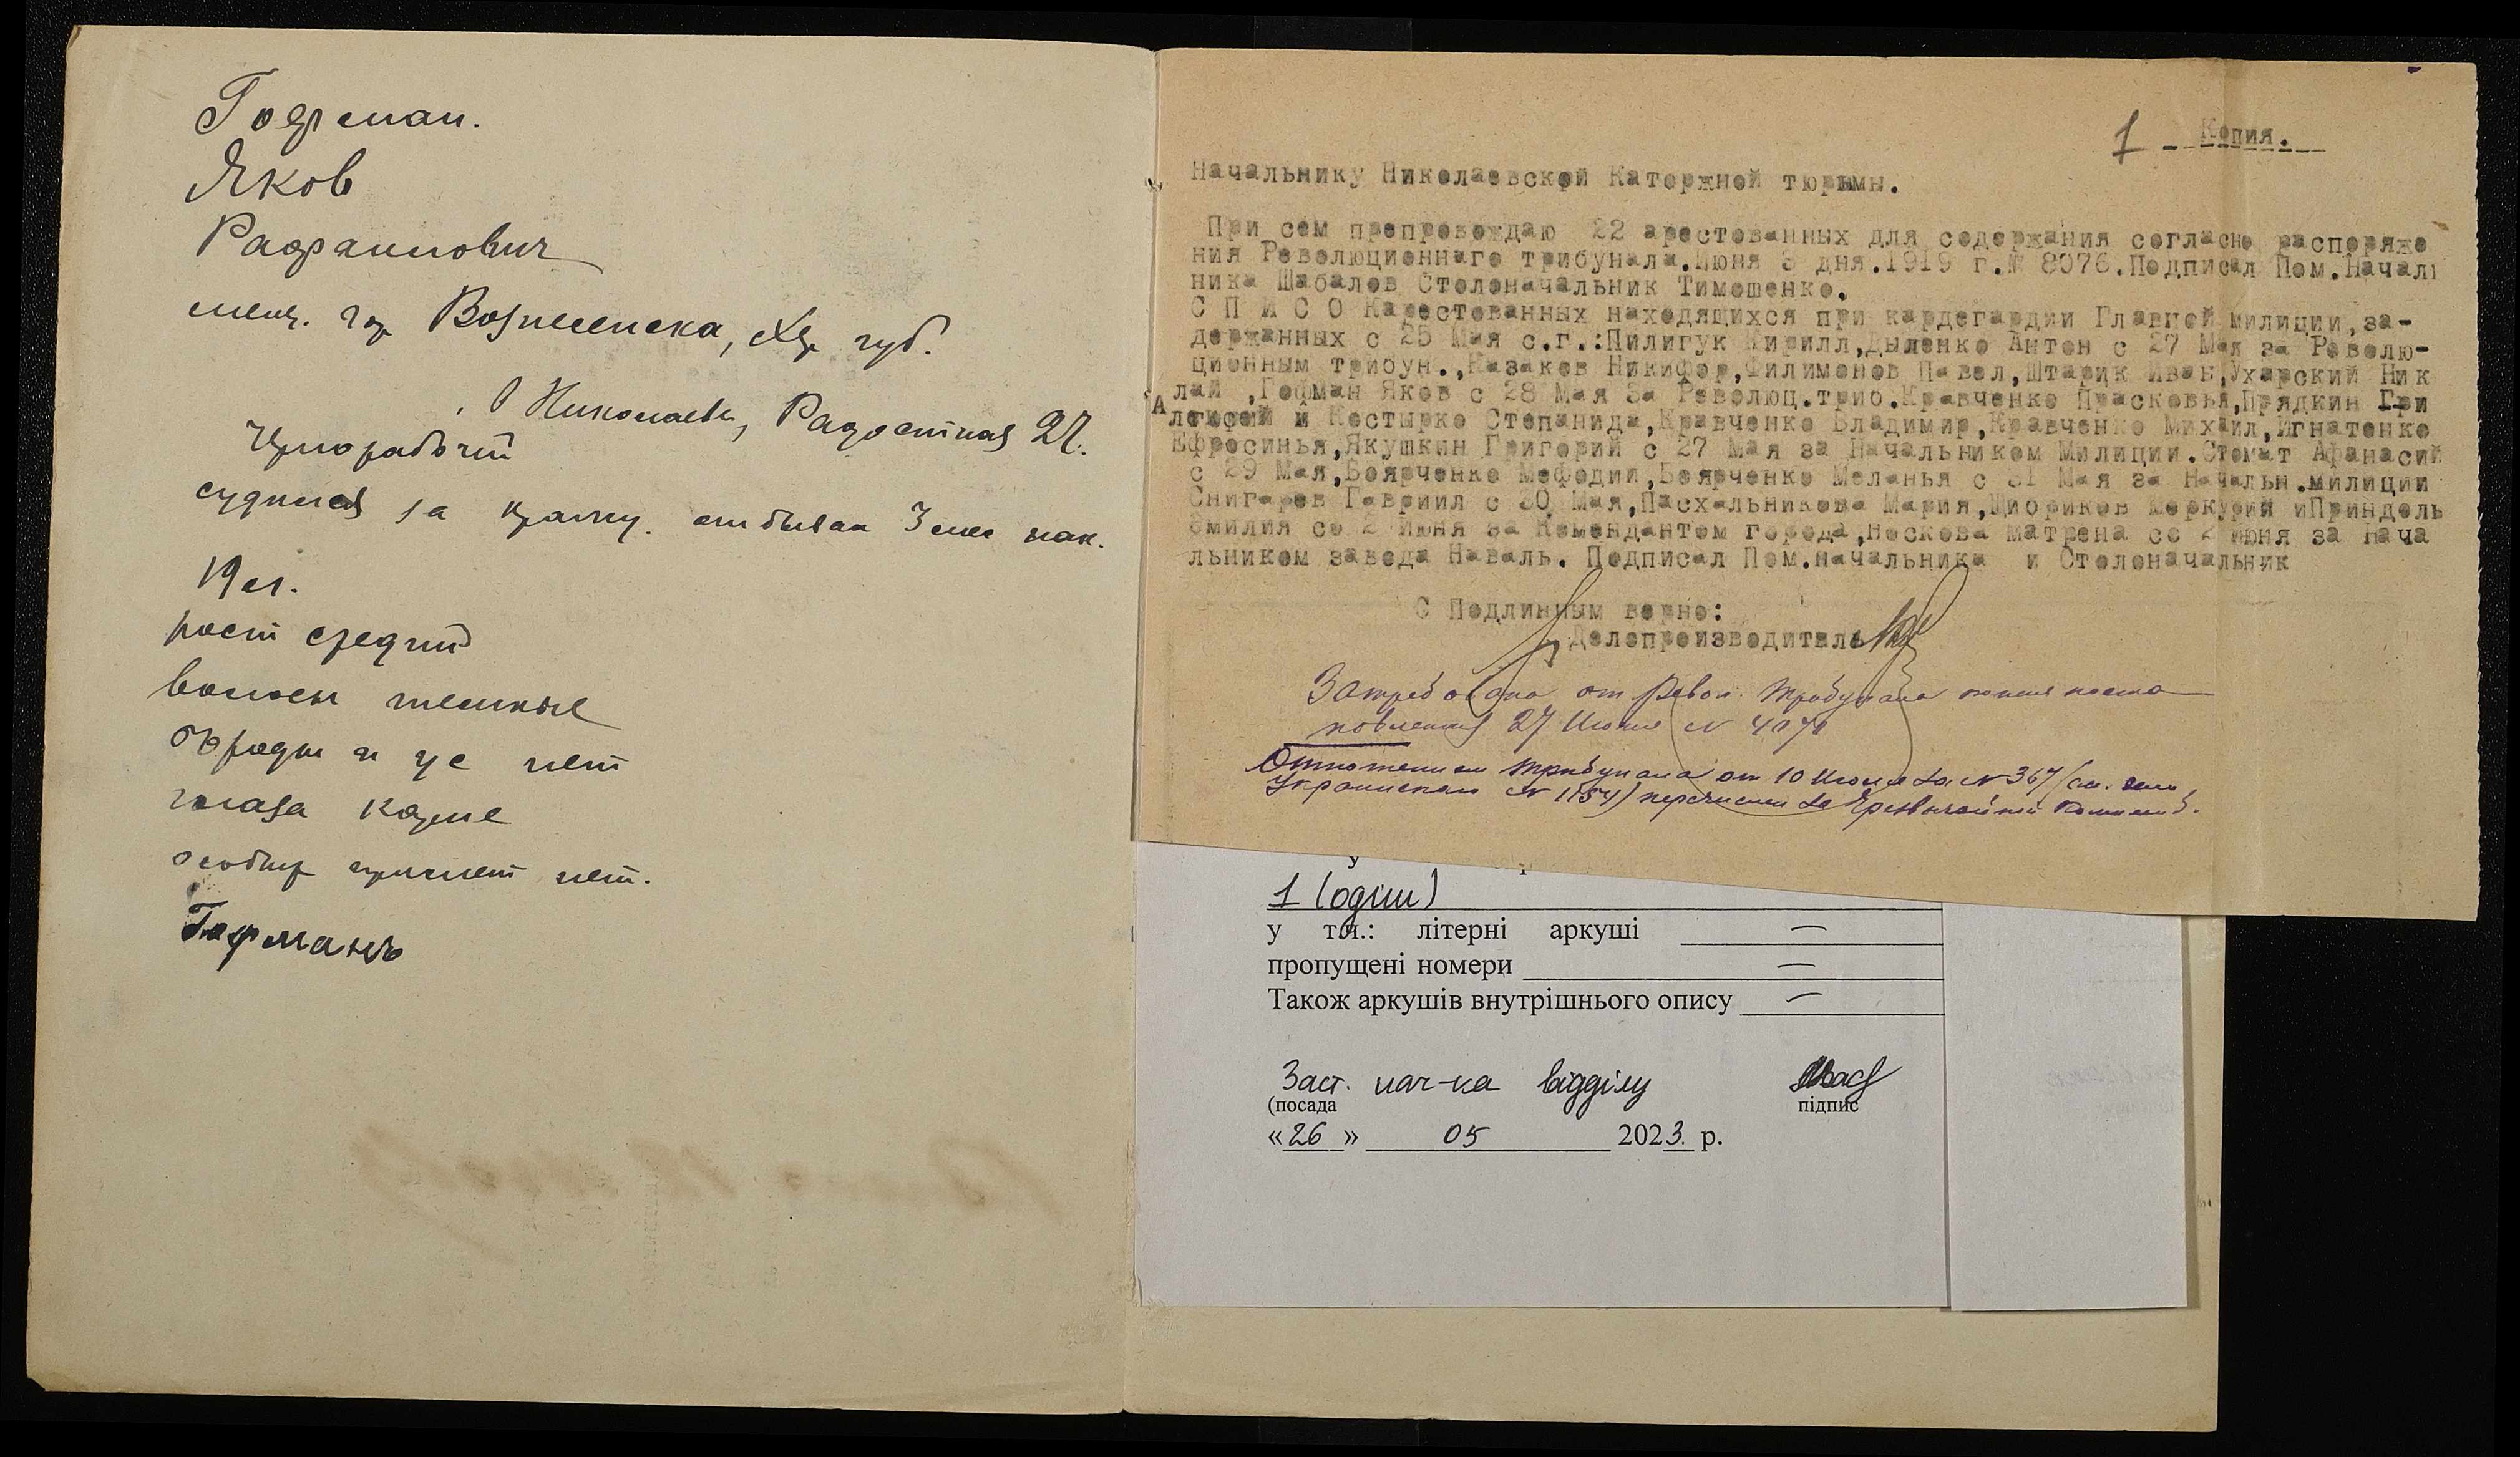 Гофман.
Яков
Рафаилович
мещ. гор Вознесенска, Хер губ.
Николаев, Радостная 27.
Чернорабочий
судился за кражу. отбывал 3 мес нак.
19 л.
рост средний
волосы темные
бороды и ус нет
глаза карие
особых примет нет.
Гофманъ
1 Копия.
Начальнику Николаевской Каторжной тюрьмы.
При сем препровождаю 22 арестованных для содержания согласно распоряже
ния Революционнаго трибунала.Июня 3 дня.1919 г.№ 8076.Подписал Пом.Началь
ника Шабалов Столоначальник Тимошенко.
С П И С О Карестованных находящихся при кардегардии Главной милиции,за-
держанных с 25 Мая с.г.:Пилипук Кирилл,Дыленко Антон с 27 Мая за Револю-
ционным трибун.,Казаков Никифор,Филимонов Павел,Штарик Иван,Ухарский Ник
лай ,Гофман Яков с 28 Мая За Революц.триб.Кравченко Прасковья,Прядкин Гри
и Костырко Степанида,Кравченко Владимир,Кравченко Михаил,Игнатенко
Ефросинья,Якушкин Григорий с 27 Мая за Начальником Милиции.Стомат Афанасий
с 29 Мая,Боярченко Мефодий,Боярченко Меланья с 31 Мая за Начальн.милиции
Снигарев Гавриил с 30 Мая,Пасхальникова Мария,Щибриков Меркурий иПриндель
Эмилия со 2 Июня за Комендантом города,Носкова Матрена со 2 Июня за Нача
льником завода Наваль. Подписал Пом.начальника и Столоначальник
С Подлинным верно:
Делопроизводитель
Затребована от Револ. Трибунала копия поста
новления 27 Июня № 4070
Отношением Трибунала от 10 Июля за № 367 (см. дело
Украинского № 1154) перечислен за Чрезвычайной Комиссией.
1 (один)
у т.ч.: літерні аркуші —
пропущені номери —
Також аркушів внутрішнього опису —
Заст. нач-ка відділу
(посада підпис
«26» 05 2023 р.